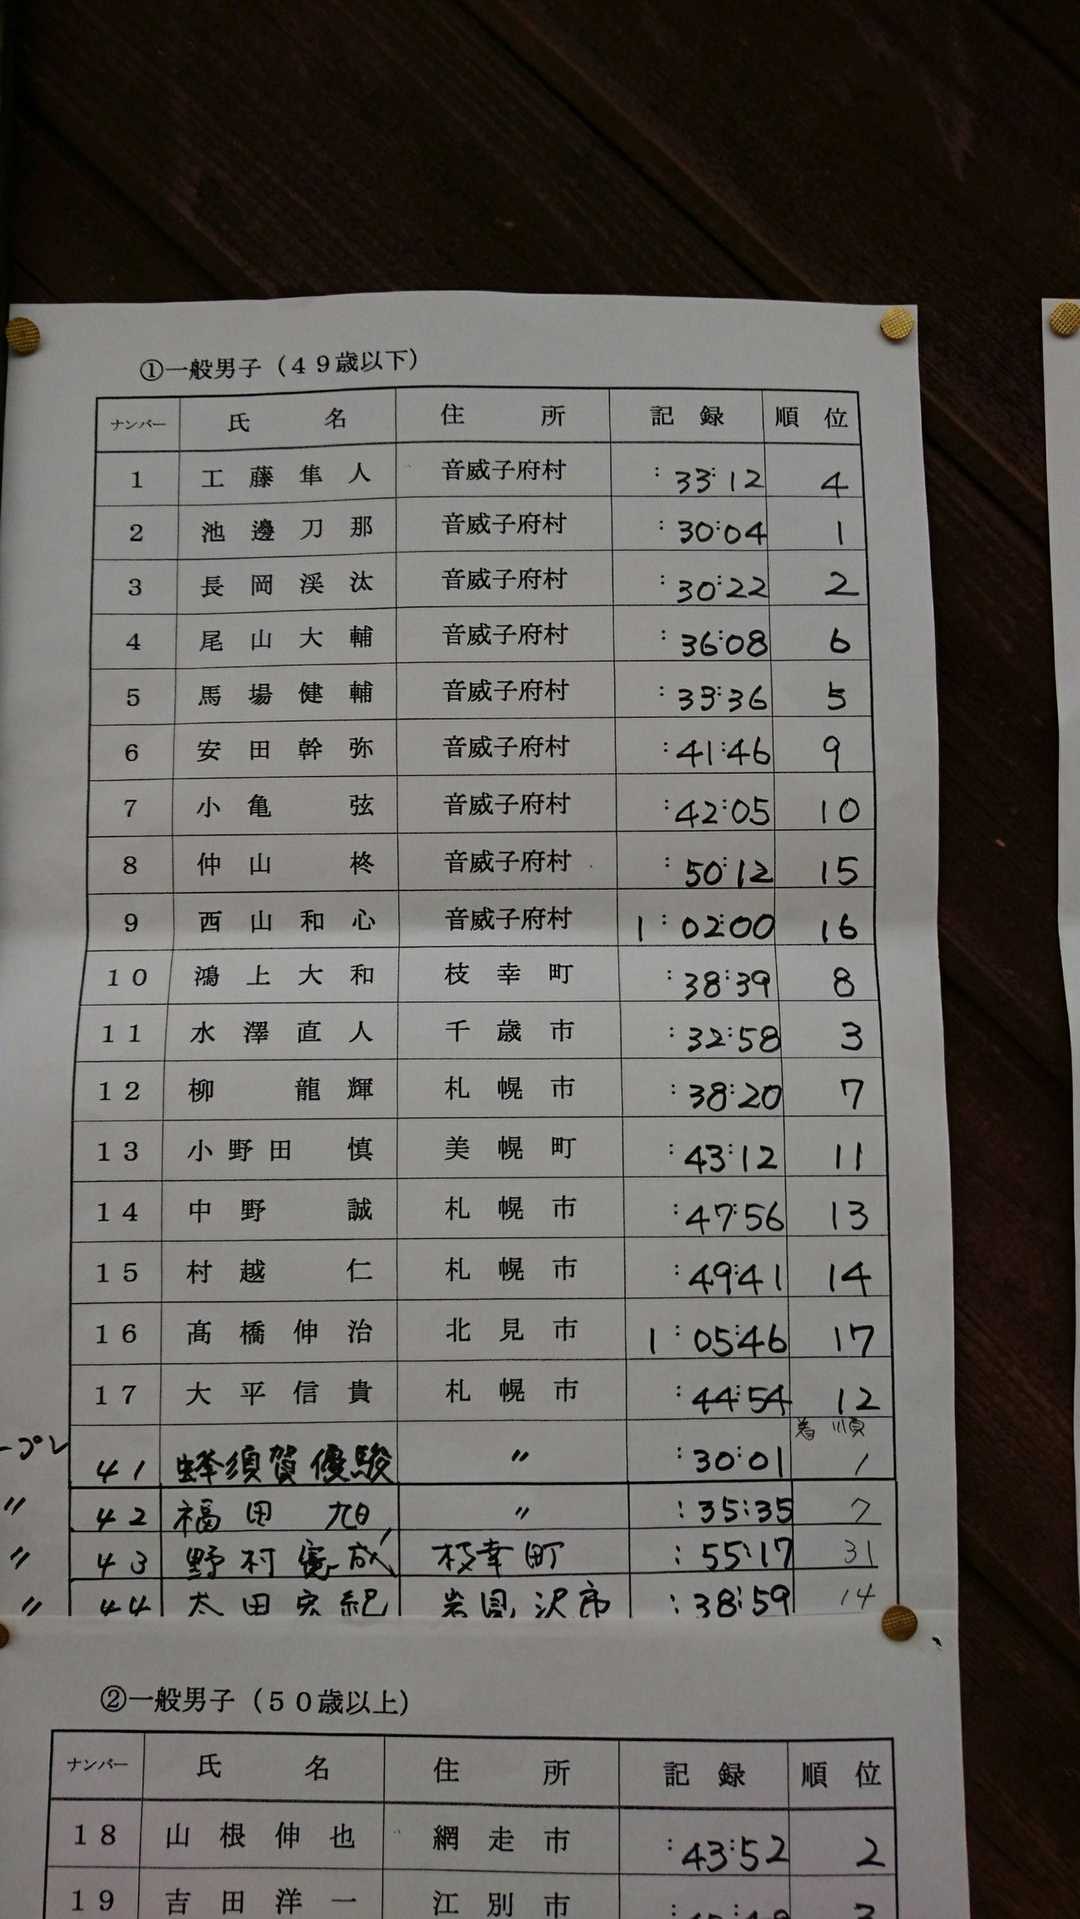 ①一般男子（４９歳以下）
ナンバー 氏 名 住 所 記 録 順 位
1 工藤隼人 音威子府村 :33:12 4
2 池邊刀那 音威子府村 :30:04 1
3 長岡渓汰 音威子府村 :30:22 2
4 尾山大輔 音威子府村 :36:08 6
5 馬場健輔 音威子府村 :35:36 5
6 安田幹弥 音威子府村 :41:46 9
7 小亀 弦 音威子府村 :42:05 10
8 仲山 柊 音威子府村 :50:12 15
9 西山和心 音威子府村 1:02:00 16
10 鴻上大和 枝幸町 :38:39 8
11 水澤直人 千歳市 :32:58 3
12 柳 龍輝 札幌市 :38:20 7
13 小野田 慎 美幌町 :43:12 11
14 中野 誠 札幌市 :47:56 13
15 村越 仁 札幌市 :49:41 14
16 髙橋伸治 北見市 1:05:46 17
17 大平信貴 札幌市 :44:54 12
着順
ープレ 41 蜂須賀優駿 〃 :30:01 1
〃 42 福田 旭 〃 :35:35 7
〃 43 野村憲成 枝幸町 :55:17 31
〃 44 太田宏紀 岩見沢市 :38:59 14
②一般男子（５０歳以上）
ナンバー 氏 名 住 所 記 録 順 位
18 山根伸也 網走市 :43:52 2
19 吉田洋一 江別市 3